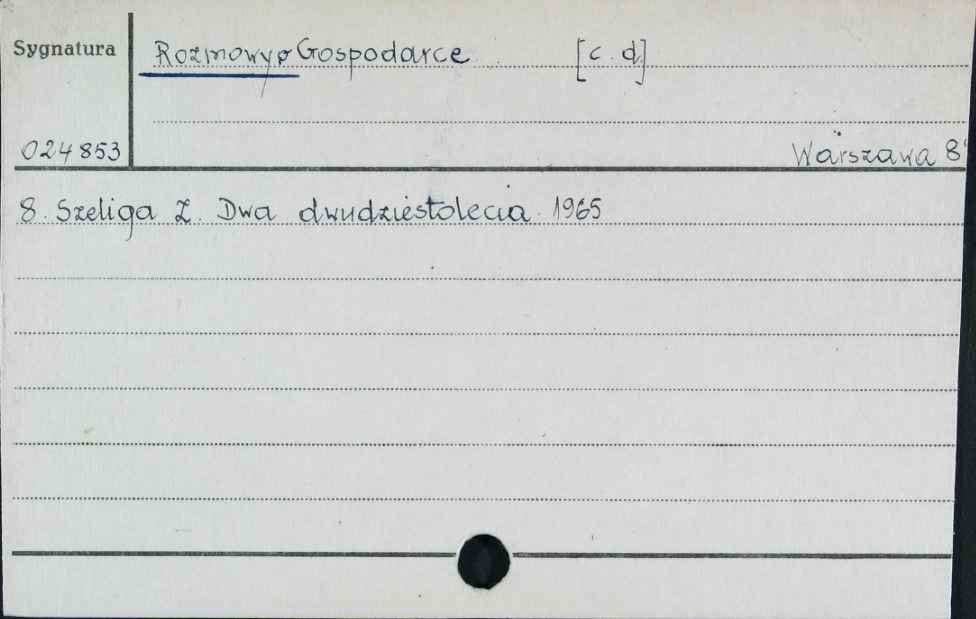 Sygnatura
Rozmowy o Gospodarce [c.d.]
024853
Warszawa 8°
8. Szeliga Z. Dwa dwudziestolecia. 1965